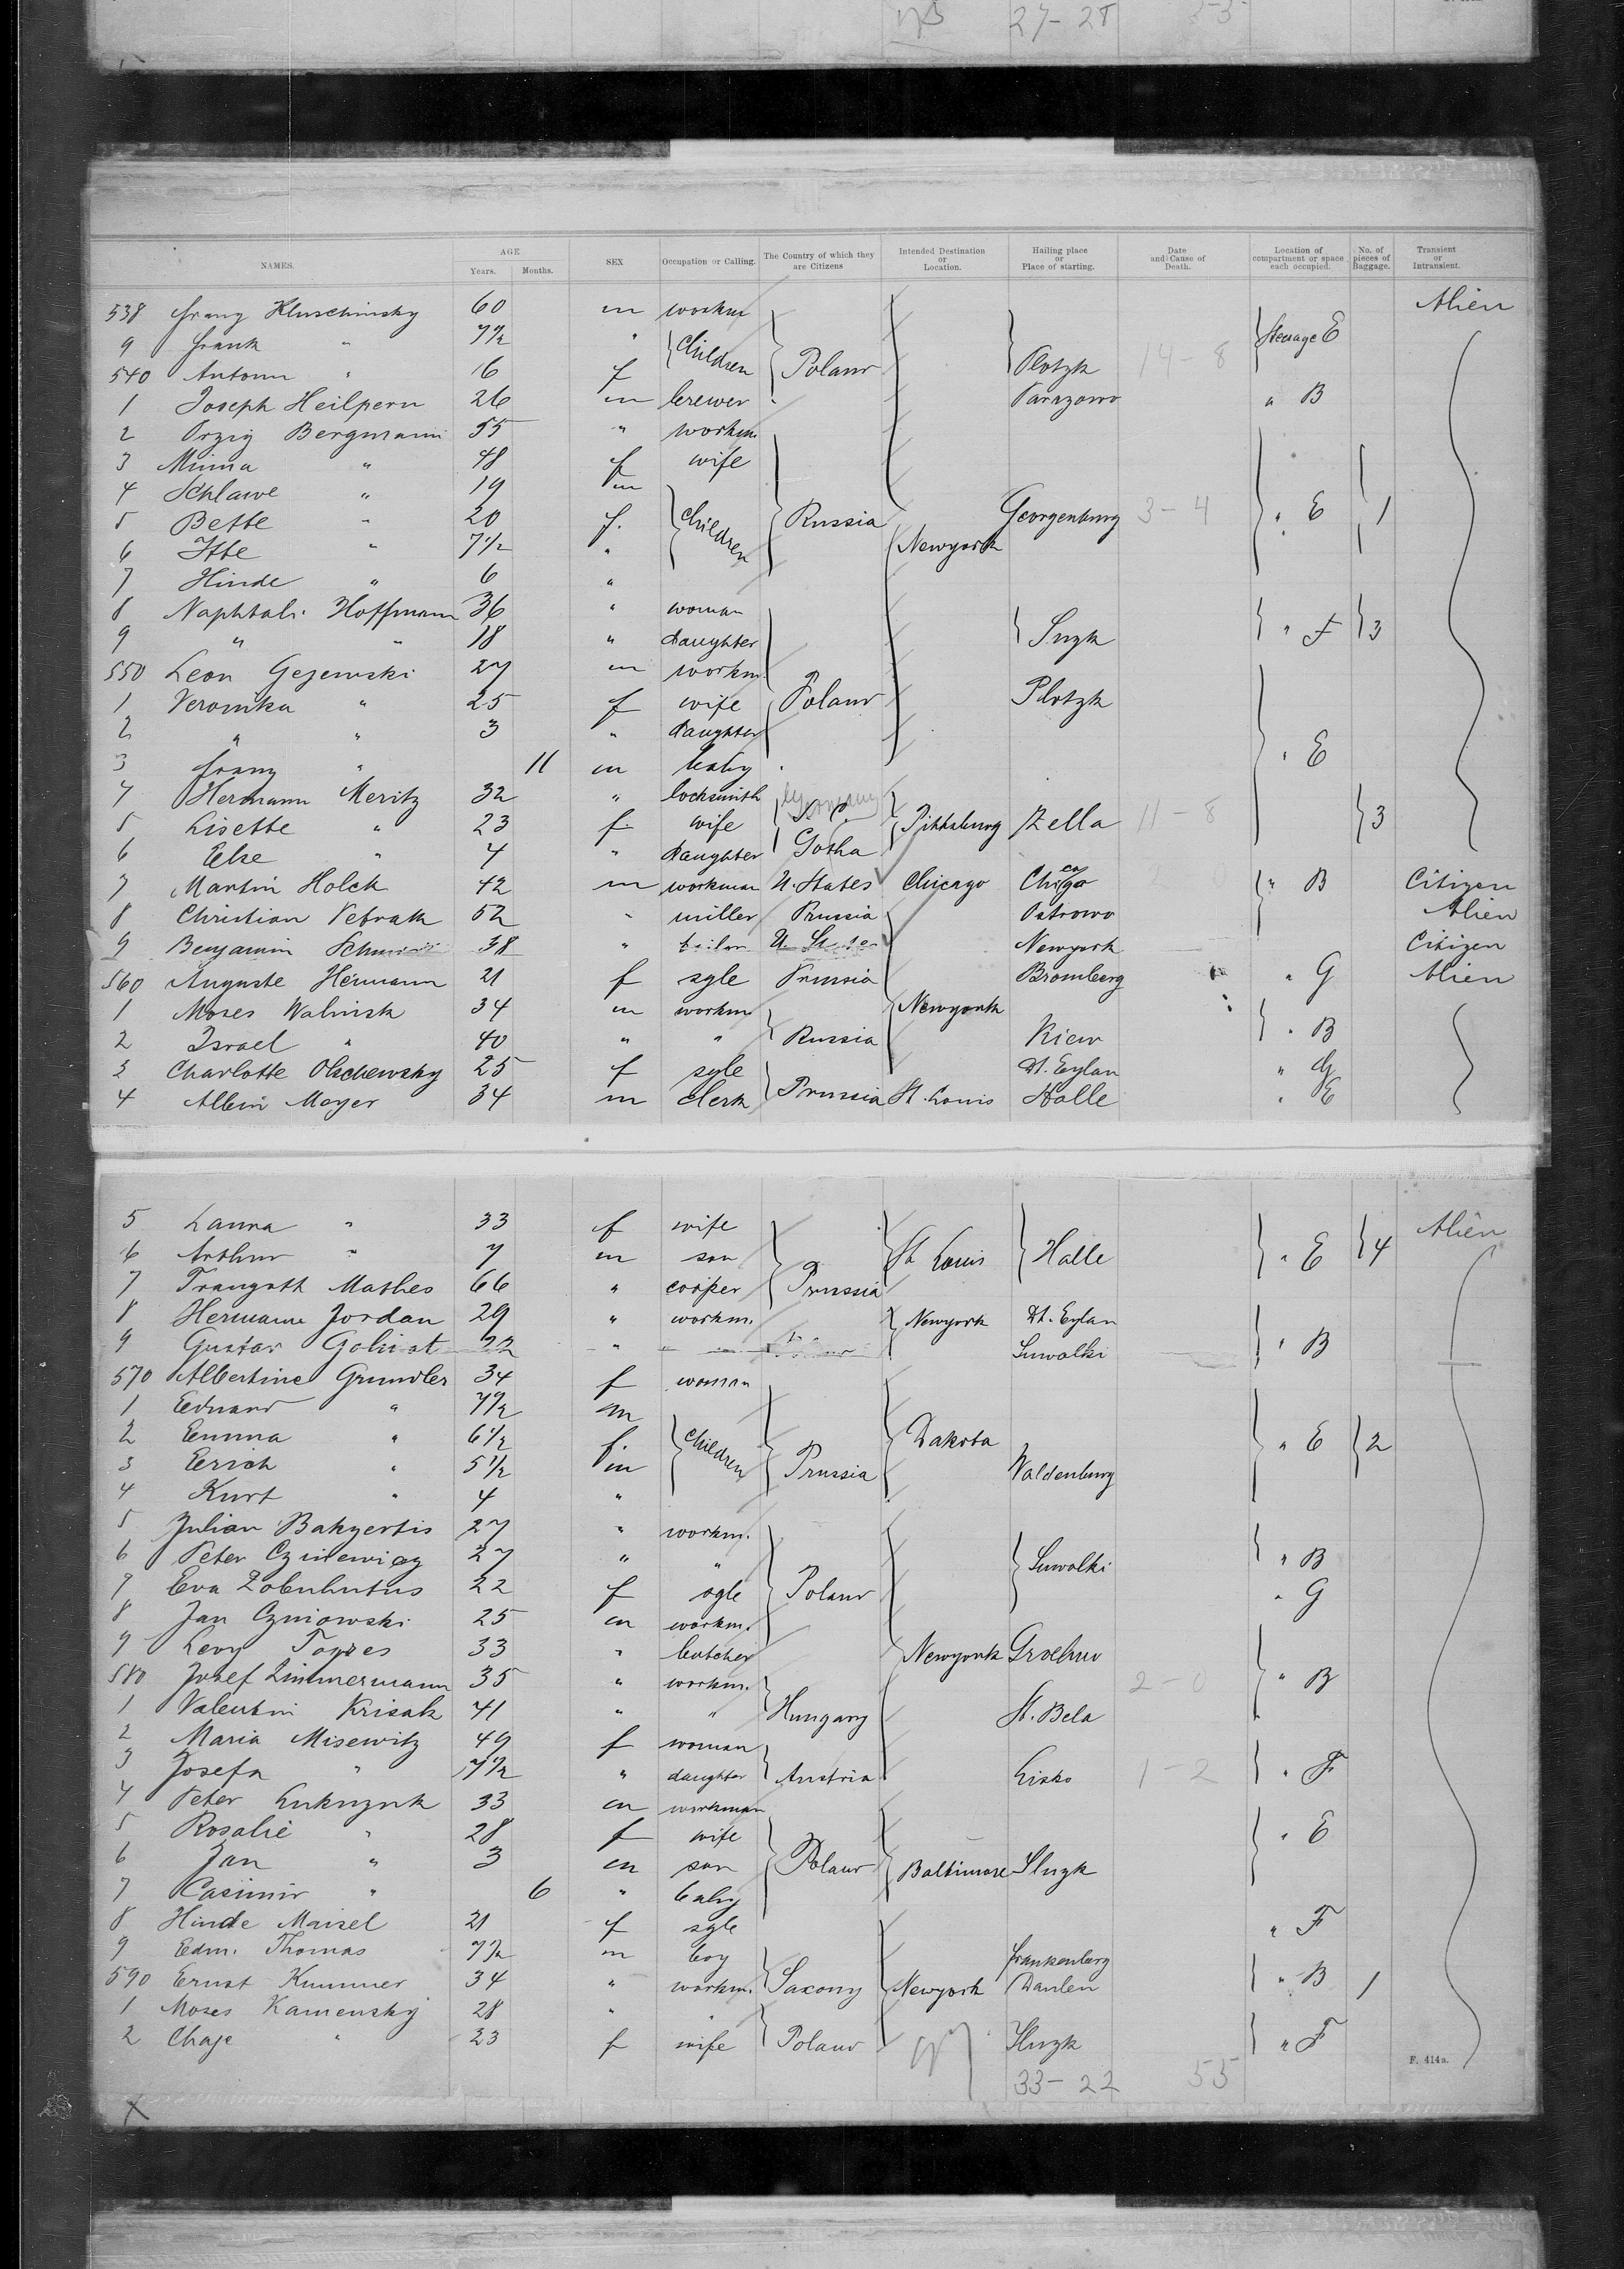 27-28
NAMES. AGE Years. Months. SEX Occupation or Calling. The Country of which they are Citizens Intended Destination or Location. Hailing place or Place of starting. Date and Cause of Death. Location of compartment or space each occupied. No. of pieces of Baggage. Transient or Intransient.
538 Franz Kluschinsky 60 m workm Alien
9 Frank " 7½ " children Steerage E
540 Antonn " 6 f Poland Plotzk 14-8
1 Joseph Heilpern 26 m brewer Parazowo " B
2 Orzig Bergmann 55 " workm.
3 Minna " 48 f wife
4 Schlawe " 19 m
5 Bette " 20 f. children Russia Georgenburg 3-4 " E 1
6 Itte " 7½ " Newyork
7 Hinde " 6 "
8 Naphtali Hoffmann 36 " woman
9 " " 18 " daughter Sluzk " F 3
550 Leon Gezewski 27 m workm.
1 Veronika " 25 f wife Poland Plotzk
2 " " 3 " daughter
3 Franz " 11 m baby " E
4 Hermann Meritz 32 " locksmith Germany
5 Lisette " 23 f. wife Pittsburg Zella 11-8 3
6 Else " 4 " daughter Gotha
7 Martin Holck 42 m workman U. States Chicago Chicago " B Citizen
8 Christian Vetrath 52 " miller Prussia Ostrowo Alien
9 Benjamin 38 " U. States Newyork Citizen
560 Auguste Hermann 21 f sgle Prussia Bromberg " G Alien
1 Moses Walnisk 34 m workm. Newyork
2 Israel " 40 " " Russia Kiew " B
3 Charlotte Olschewsky 25 f sgle Dt. Eylau " G
4 Albin Meyer 34 m clerk Prussia St. Louis Halle " E
5 Laura " 33 f wife Alien
6 Arthur " 7 m son St Louis Halle " E 4
7 Traugoth Mathes 66 " cooper Prussia
8 Hermann Jordan 29 " workm. Newyork Dt. Eylau
9 Gustav Goliat 22 " Suwalki " B
570 Albertine Grundler 34 f woman
1 Eduard " 7½ m
2 Emma " 6½ f. children Dakota " E 2
3 Erich " 5½ m Prussia Waldenburg
4 Kurt " 4 "
5 Julian Bakyertis 27 " workm.
6 Peter 27 " " Suwalki " B
7 Eva 22 f sgle Poland " G
8 Jan Czniowski 25 m workm.
9 Levy 33 " butcher Newyork
580 Josef Zimmermann 35 " workm. 2-0 " B
1 Valentin Krisak 41 " " Hungary St. Bela
2 Maria Misewitz 49 f woman
3 Josefa " 7½ " daughter Austria Lisko 1-2 " F
4 Peter Lukuzuk 33 m workman
5 Rosalie " 28 f wife " E
6 Jan " 3 m son Poland Baltimore Sluzk
7 Casimir " 6 " baby
8 Hinde Maisel 21 f sgle " F
9 Edm. Thomas 7½ m boy Frankenberg
590 Ernst Kummer 34 " workm. Saxony Newyork " B 1
1 Moses Kamensky 28 " "
2 Chaje " 23 f wife Poland Sluzk " F
F. 414a.
33-22 55
X